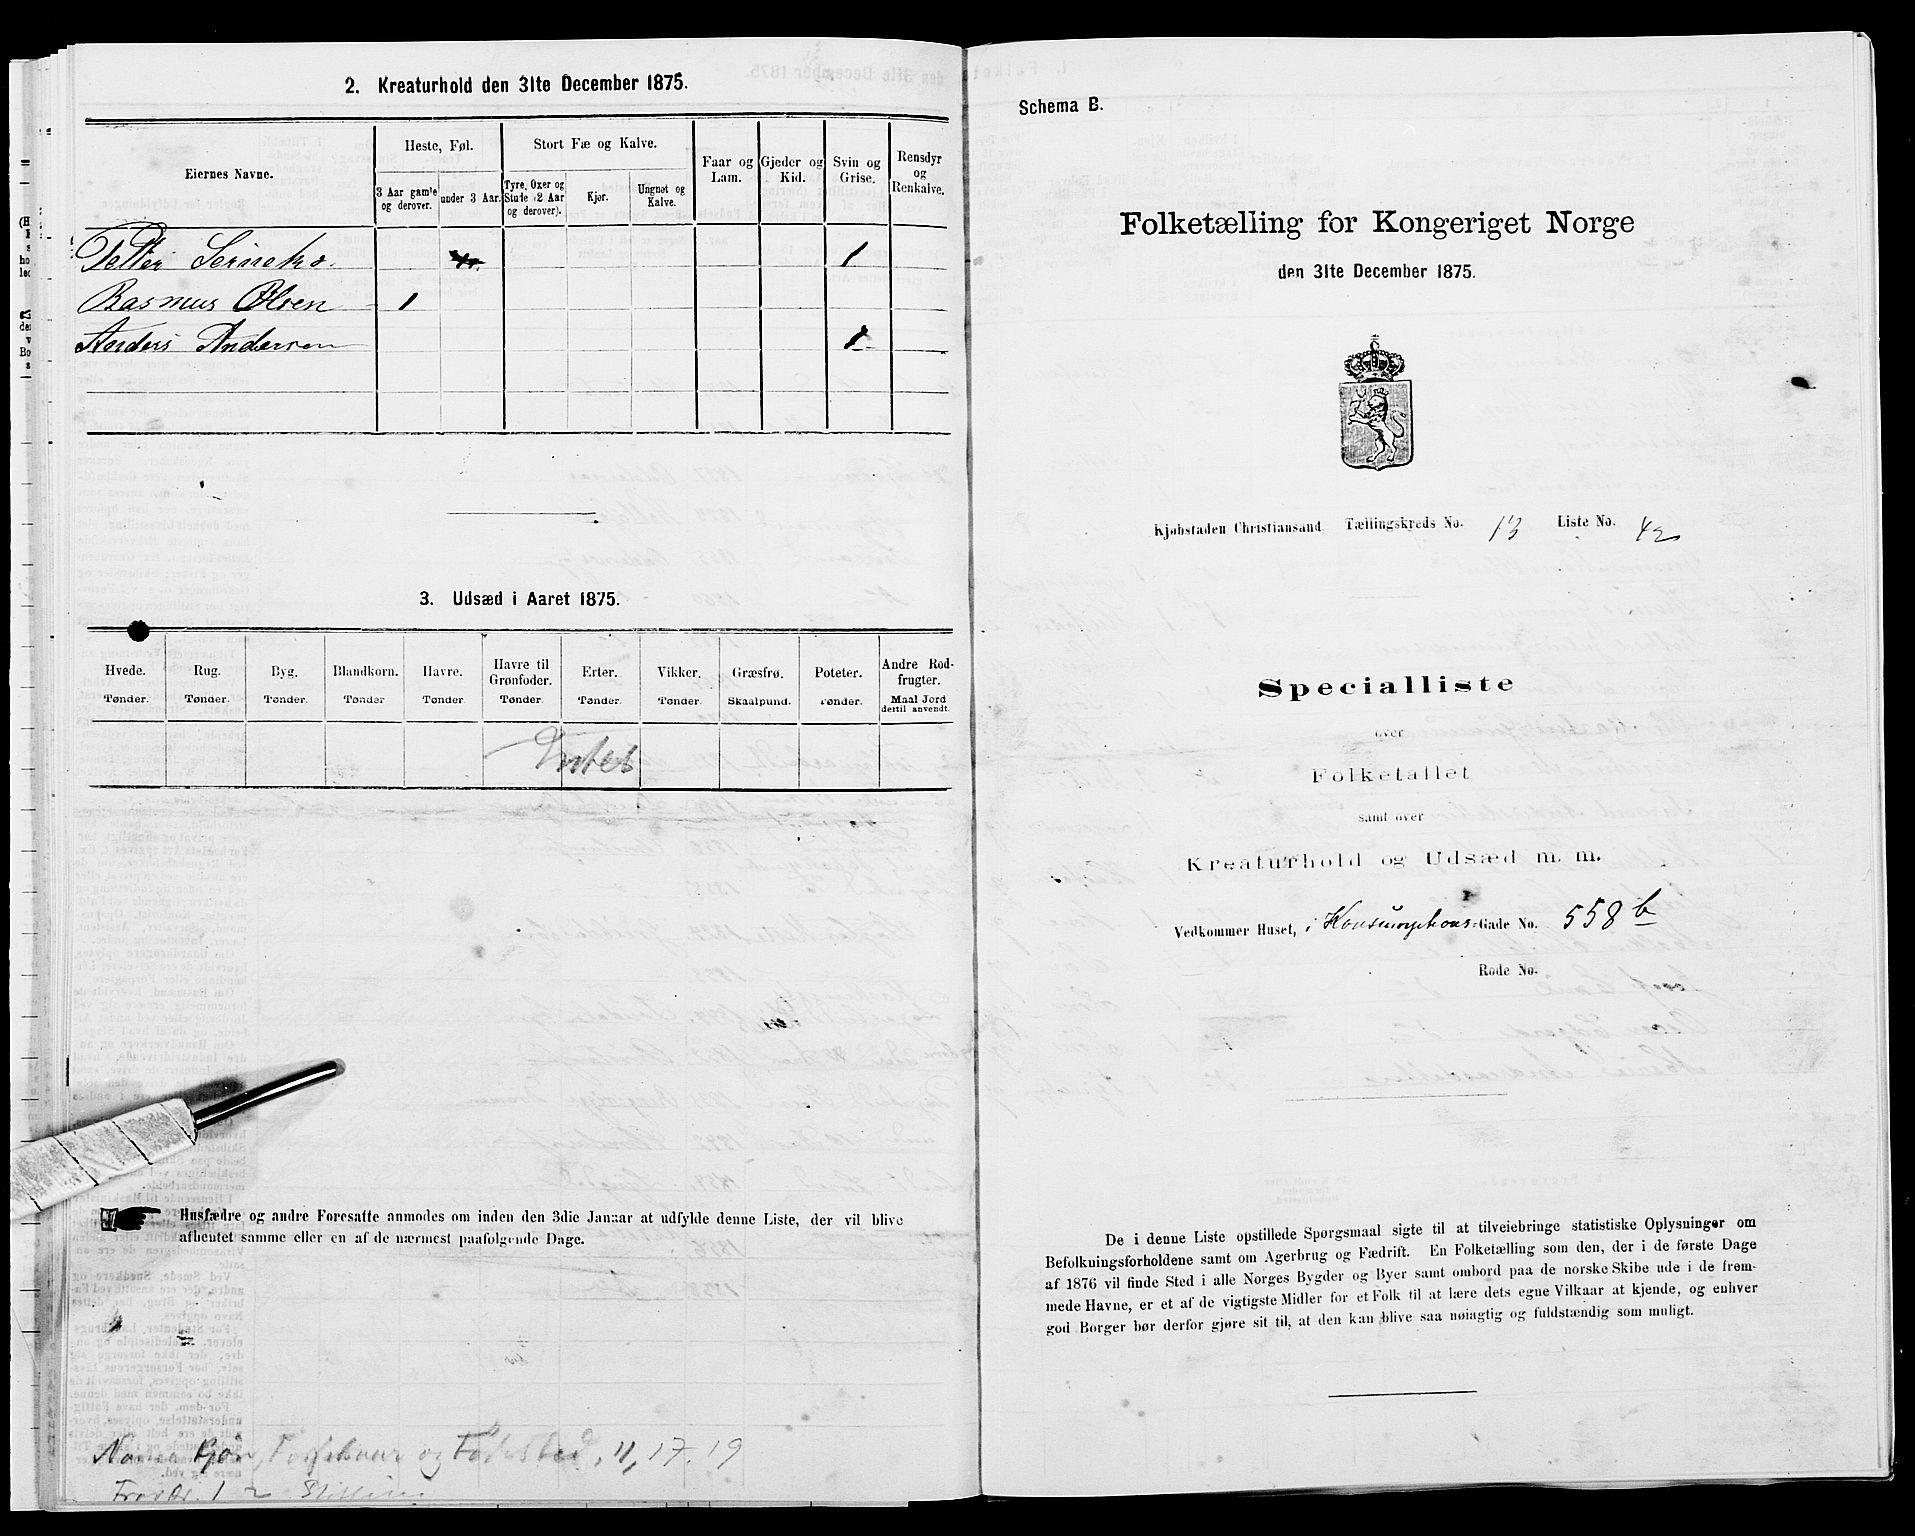 2. Kreaturhold den 31te December 1875.
Eiernes Navne.
Heste, Føl.
3 Aar gamle og derover.
under 3 Aar.
Stort Fæ og Kalve.
Tyre, Oxer og Stude (2 Aar og derover).
Kjør.
Ungnøt og Kalve.
Faar og Lam.
Gjeder og Kid.
Svin og Grise.
Rensdyr og Renkalve.
Petter 1
Rasmus Olsen 1
Anders Andersen 1
3. Udsæd i Aaret 1875.
Hvede. Tønder.
Rug. Tønder.
Byg. Tønder.
Blandkorn. Tønder
Havre. Tønder.
Havre til Grønfoder. Tønder.
Erter. Tønder.
Vikker. Tønder.
Græsfrø. Skaalpund.
Poteter. Tønder.
Andre Rodfrugter. Maal Jord dertil anvendt.
Intet
Husfædre og andre Foresatte anmodes om inden den 3die Januar at udfylde denne Liste, der vil blive
afhentet samme eller en af de nærmest paafølgende Dage.
og Fødested, 11, 17. 19
Schema B.
Folketælling for Kongeriget Norge
den 31te December 1875.
Kjøbstaden Christiansand Tællingskreds No. 13 Liste No. 42
Specialliste
over
Folketallet
samt over
Kreaturhold og Udsæd m. m.
Vedkommer Huset, i Konsumptions-Gade No. 558 b
Rode No.
De i denne Liste opstillede Spørgsmaal sigte til at tilveiebringe statistiske Oplysninger om
Befolkningsforholdene samt om Agerbrug og Fædrift. En Folketælling som den, der i de første Dage
af 1876 vil finde Sted i alle Norges Bygder og Byer samt ombord paa de norske Skibe ude i de frem-
mede Havne, er et af de vigtigste Midler for et Folk til at lære dets egne Vilkaar at kjende, og enhver
god Borger bør derfor gjøre sit til, at den kan blive saa nøiagtig og fuldstændig som muligt.